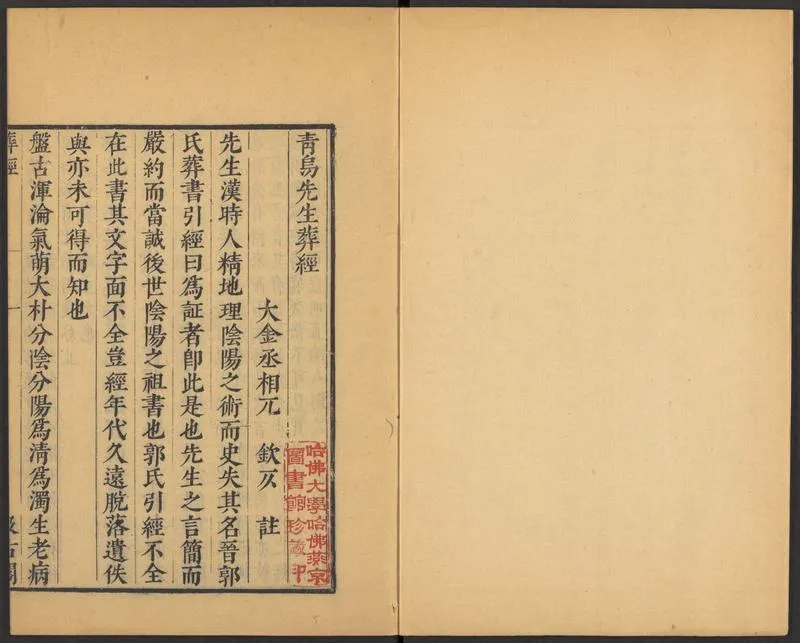 青烏先生葬經
大金丞相兀　欽仄　註
先生漢時人精地理陰陽之術而史失其名晉郭
氏葬書引經曰爲証者卽此是也先生之言簡而
嚴約而當誠後世陰陽之祖書也郭氏引經不全
在此書其文字面不全豈經年代久遠脫落遺佚
與亦未可得而知也
盤古渾淪氣萌大朴分陰分陽爲清爲濁生老病
葬經
一
汲古閣
哈佛大學哈佛燕京
圖書館珍藏印